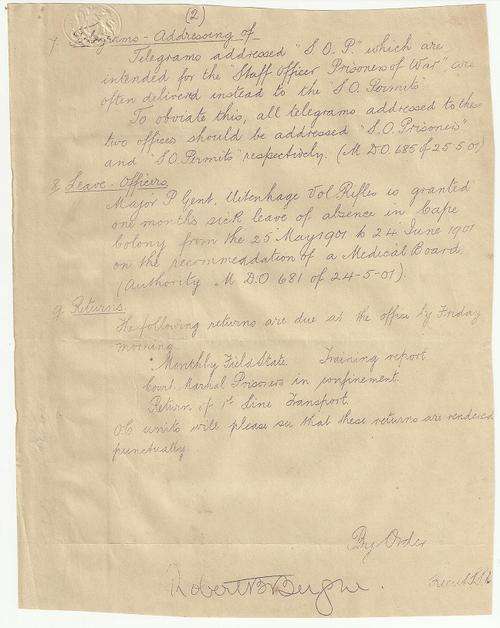 (2)
7. Telegrams - Addressing of -
Telegrams addressed "S.O.P." which are
intended for the Staff Officer Prisoners of War" are
often delivered instead to the S.O. Permits.
To obviate this, all telegrams addressed to these
two offices should be addressed "S.O. Prisoners"
and "S.O. Permits" respectively. (M.D.O 685 of 25-5-01)
8 Leave - Officers
Major P Gent. Uitenhage Vol. Rifles is granted
one months sick leave of absence in Cape
Colony from the 25 May 1901 to 24 June 1901
on the recommendation of a Medical Board.
(Authority M.D.O 681 of 24-5-01).
9 Returns.
The following returns are due at the office by Friday
morning
Monthly Field State. Training report
Court Martial Prisoners in confinement.
Return of 1st Line Transport.
O.C units will please see that these returns are rendered
punctually.
By Order
Robert B